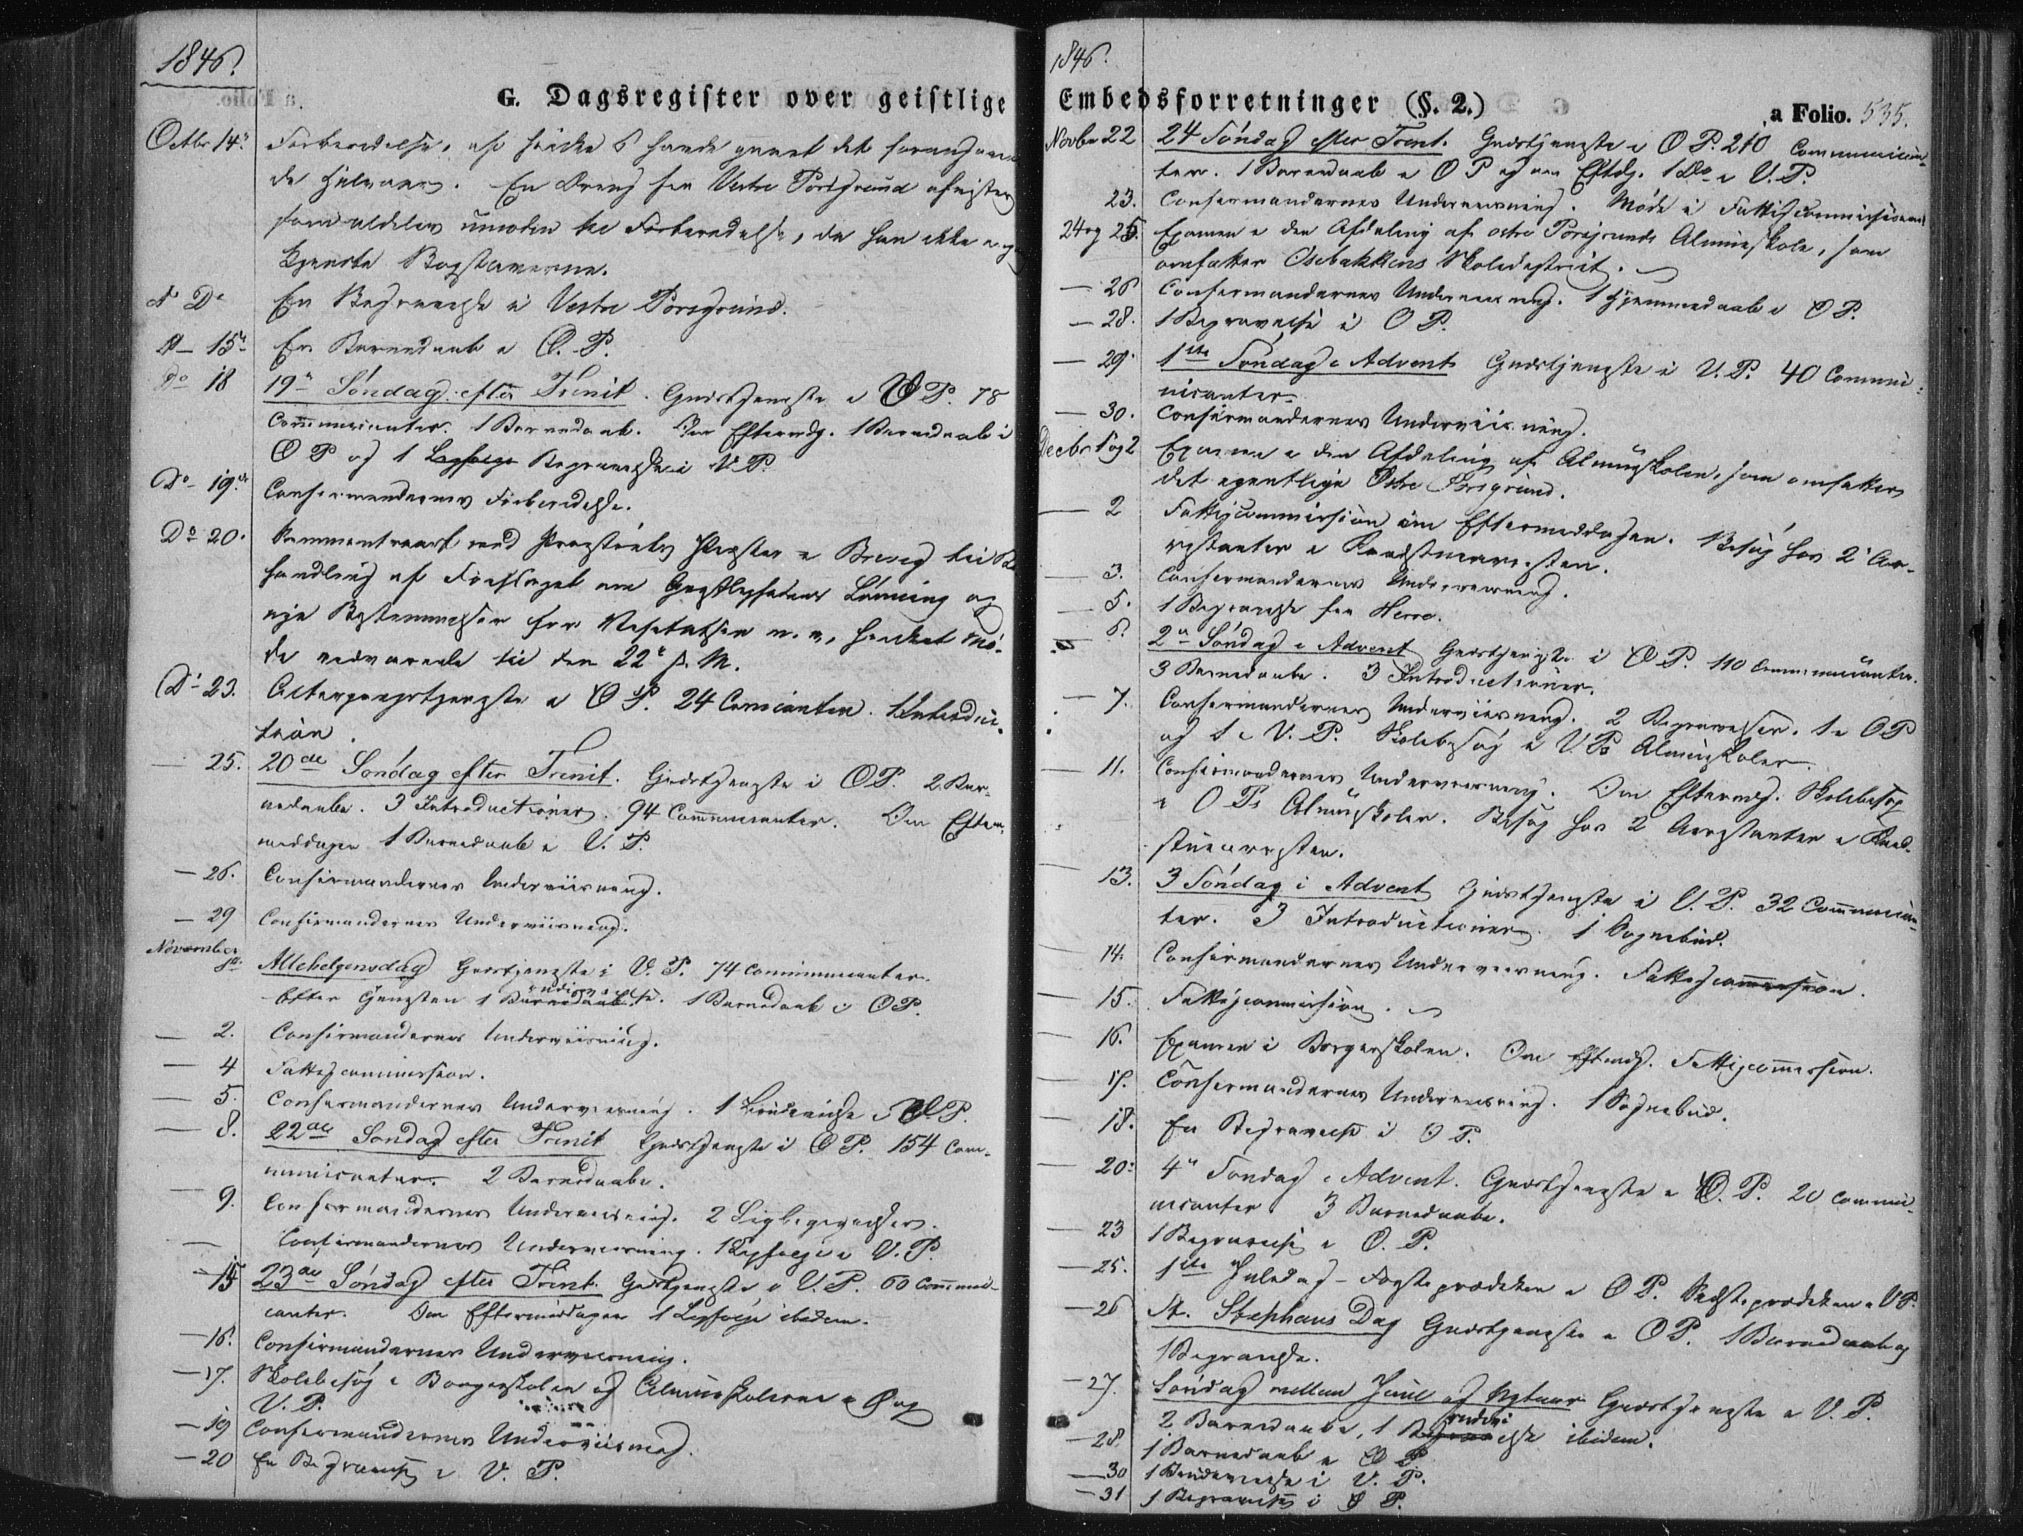 1846.
G. Dagsregister over geistlige
Octbr 14de
Forberedelse, af hvilke 6 havde
de Hjelpaar. En Dreng fra Vestre Porsgrund afvistes
som aldeles umoden til Forberedelse, da han ikke engang
kjendte Bogstaverne.
Do Do En Begravelse i Vestre Porsgrund.
D - 15de En Barnedaab i Ø. P.
Do 18 19de Søndag efter Trinit. Gudstjeneste i ØP. 78
Communicanter. 1 Barnedaab. Om Eftermdg. 1 Barnedaab i
Ø P og 1 Ligfølge Begravelse i V.P.
Do - 19de Confirmandernes Forberedelse.
Do 20. Sammentraadt med Provstiets Præster i Brevig til Be-
handling af Forslaget om Geistlighedens Lønning og
nye Bestemmelser for Visitatsen m. v., hvilket Mø-
de vedvarede til den 22de s. M.
Do 23. Altergangstjeneste i Ø P. 24 Comicanter. 1 Introduc-
tion.
- 25. 20de Søndag efter Trinit. Gudstjeneste i ØP. 2 Bar-
nedaabe. 3 Introductioner. 94 Communicanter. Om Efter-
middagen 1 Barnedaab i V. P.
- 26. Confirmandernes Underviisning.
- 29 Confirmandernes Underviisning.
November
1ste Allehelgensdag Gudstjeneste i V. P. 74 Communicanter.
Efter Tjenesten 1 Barnedaab. 1 Barnedaab i ØP.
- 2. Confirmandernes Underviisning.
- 4 Fattigcommission.
- 5. Confirmandernes Underviisning. 1 Brudevielse i ØP.
- 8. 22de Søndag efter Trinit Gudstjeneste i Ø P. 154 Com-
municanter. 2 Barnedaabe.
- 9. Confirmandernes Underviisning. 2 Ligbegravelser.
- Confirmandernes Underviisning. 1 Ligfølge i V.P.
- 15 23de Søndag efter Trinit. Gudstjeneste i V. P. 60 Commui-
canter. Om Eftermiddagen 1 Ligfølge ibidem.
- 16. Confirmandernes Underviisning.
- 17. Skolebesøg i Borgerskolen og Almueskolerne i Ø og
V. P.
- 19 Confirmandernes Underviisning.
- 20 En Begravelse i V. P.
1846.
Embedsforretninger (§. 2.)
a Folio. 535.
Novbr 22 24 Søndag efter Trinit. Gudstjeneste i Ø P. 210 Communican-
ter. 1 Barnedaab i Ø P og om Eftdg. 1 Do i V. P.
23. Confirmandernes Underviisning. Møde i Fattigcommissionen
24 og 25. Examen i den Afdeling af østre Porsgrunds Almueskole, som
omfatter Osebakkens Skoledistrict.
- 26 Confirmandernes Underviisning. 1 Hjemmedaab i Ø P.
- 28. 1 Begravelse i Ø P.
- 29. 1ste Søndag i Advent Gudstjeneste i V. P. 40 Commu-
nicanter.
- 30. Confirmandernes Underviisning.
Decbr 1 og 2 Examen i den Afdeling af Almueskolen, som omfatter
det egentlige Østre Porsgrund.
- 2 Fattigcommission om Eftermiddagen. Besøg hos 2 Ar-
restanter i Raadstuearresten.
- 3. Confirmandernes Underviisning.
- 5. 1 Begravelse fra Herre.
- 6. 2den Søndag i Advent Gudstjeneste i Ø P. 110 Communicanter.
3 Barnedaabe. 3 Introductioner.
- 7. Confirmandernes Underviisning. 2 Begravelser. 1 i ØP
og 1 i V. P. Skolebesøg i V.Ps Almueskoler.
- 11. Confirmandernes Underviisning. Om Eftermdg. Skolebesøg
i Ø Ps Almueskoler. Besøg hos 2 Arrestanter i Raad-
stuearresten.
- 13. 3 Søndag i Advent Gudstjeneste i V. P. 32 Communican-
ter. 3 Introductioner. 1 Sognebud.
- 14. Confirmandernes Underviisning. Fattigcommission.
- 15. Fattigcommission.
- 16. Examen i Borgerskolen. Om Eftmdg. Fattigcommission.
- 17. Confirmandernes Underviisning. 1 Sognebud.
- 18. En Begravelse i Ø P.
- 20. 4de Søndag i Advent. Gudstjeneste i Ø. P. 20 Commu-
nicanter 3 Barnedaabe.
- 23 1 Begravelse i Ø. P.
- 25. 1ste Juledag - Første prædiken i Ø P. Sidste prædiken i VP.
- 26 St. Stephans Dag Gudstjeneste i ØP. 1 Barnedaab og
1 Begravelse.
- 27. Søndag mellem Juul og Nytaar Gudstjeneste i V. P.
2 Barnedaabe, 1 Brudevielse ibidem.
- 28 1 Barnedaab i Ø P.
- 30 1 Brudevielse i V. P.
- 31 1 Begravelse i Ø P.